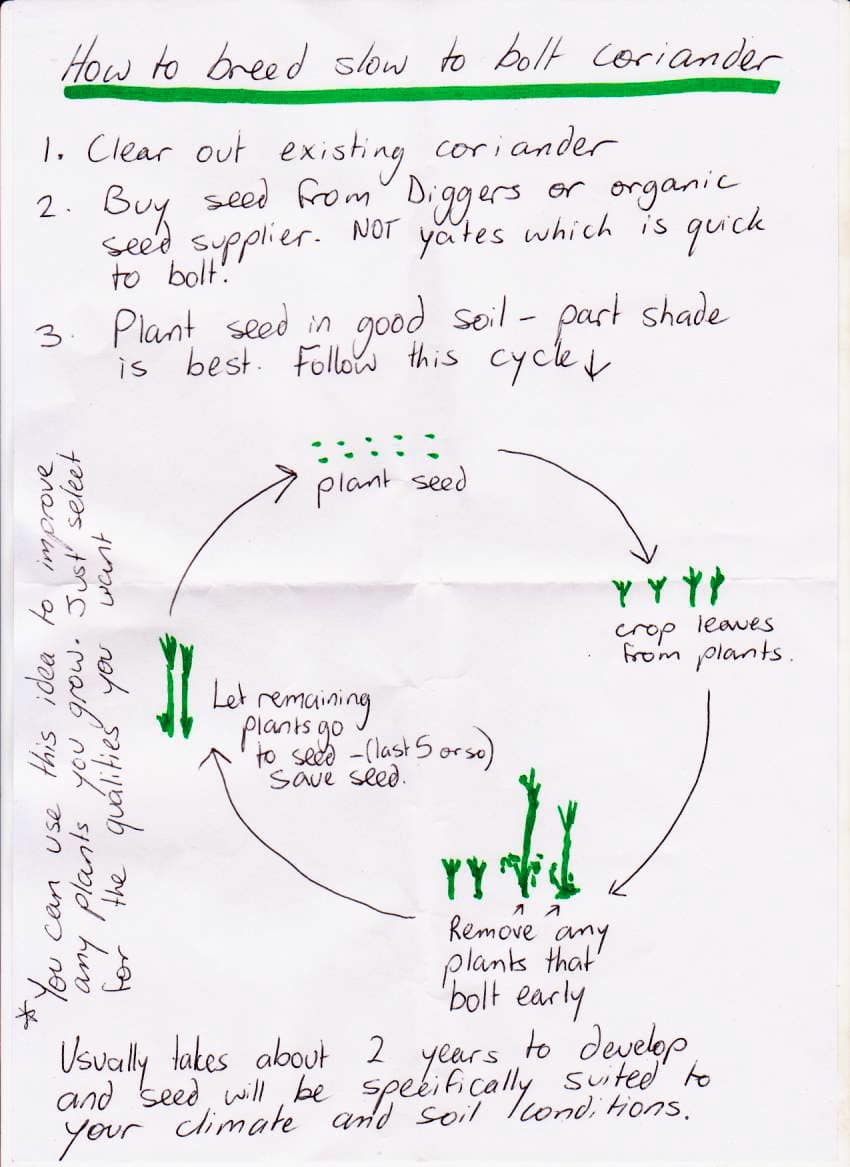 How to breed slow to bolt coriander
1. Clear out existing coriander
2. Buy seed from Diggers or organic
seed supplier. NOT yates which is quick
to bolt.
3. Plant seed in good soil - part shade
is best. Follow this cycle ↓
plant seed
crop leaves
from plants.
Remove any
plants that
bolt early
Let remaining
plants go
to seed - (last 5 or so)
save seed.
* You can use this idea to improve
any plants you grow. Just select
for the qualities you want
Usually takes about 2 years to develop
and seed will be speifically suited to
your climate and soil conditions.